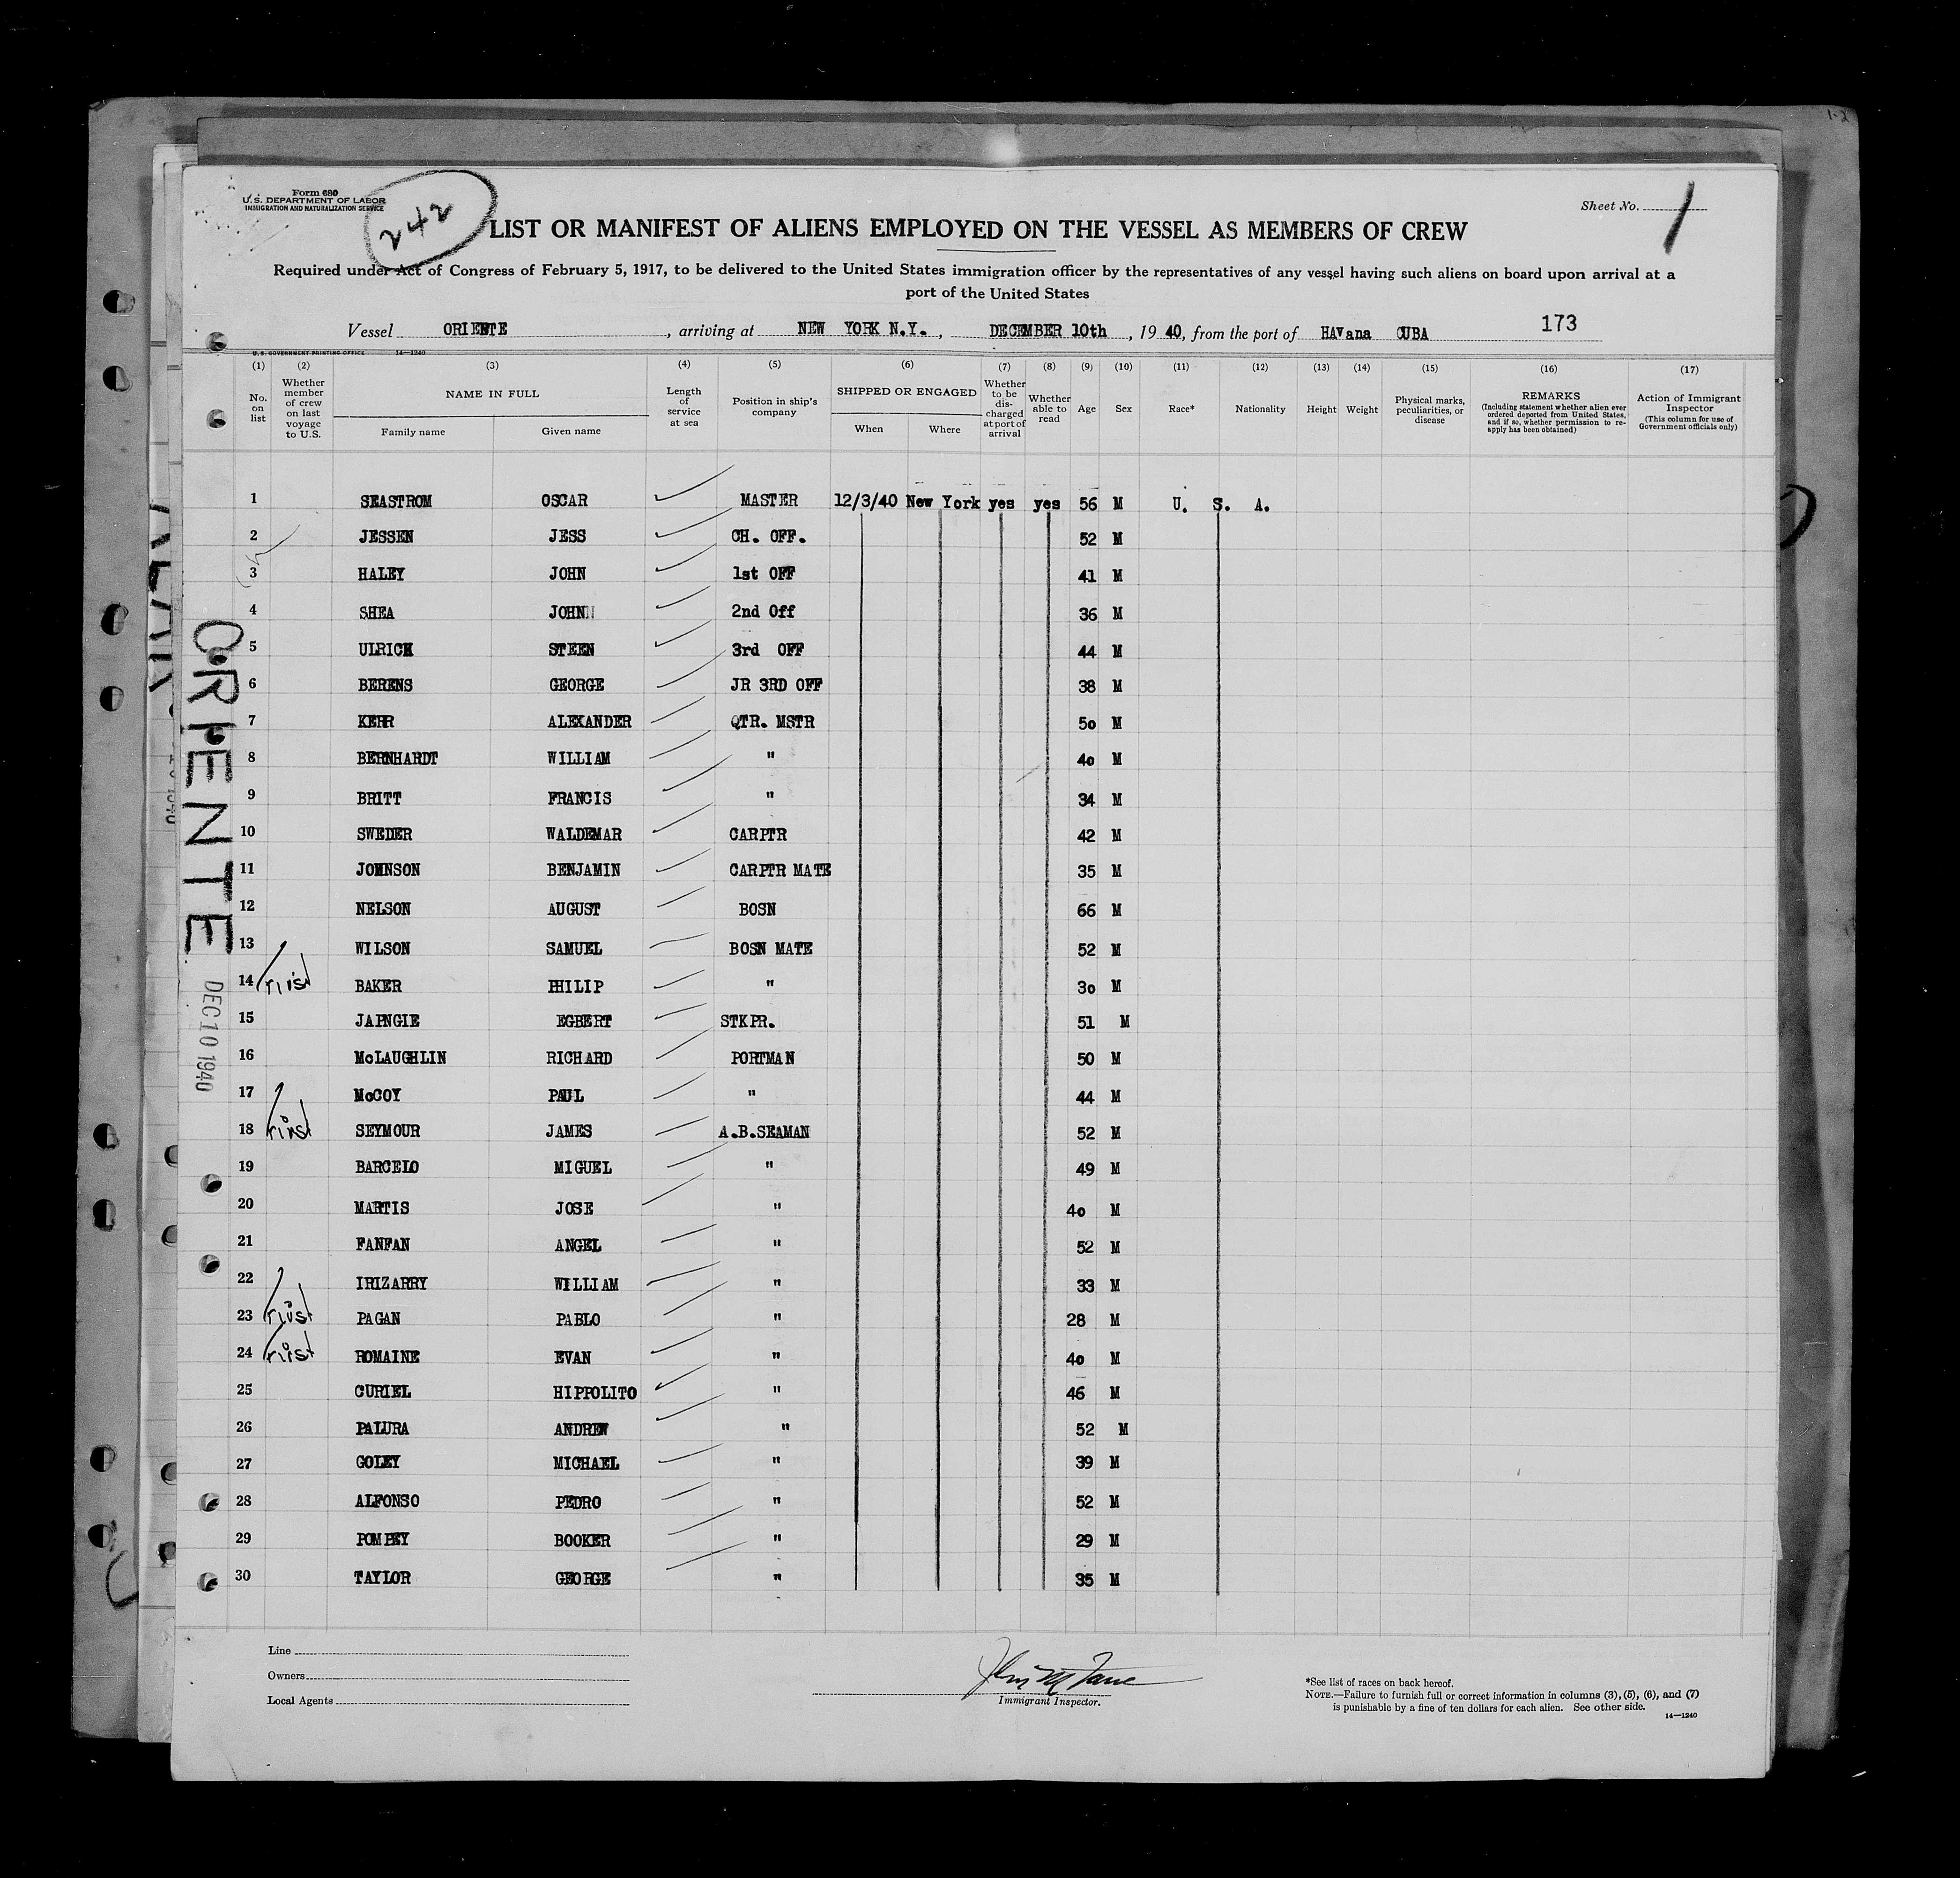 1-2
Form 680
U.S. DEPARTMENT OF LABOR
IMMIGRATION AND NATURALIZATION SERVICE
242
Sheet No. 1
LIST OR MANIFEST OF ALIENS EMPLOYED ON THE VESSEL AS MEMBERS OF CREW
Required under Act of Congress of February 5, 1917, to be delivered to the United States immigration officer by the representatives of any vessel having such aliens on board upon arrival at a
port of the United States
Vessel ORIENTE, arriving at NEW YORK N.Y., DECEMBER 10th, 19 40, from the port of HAvana CUBA 173
U.S. GOVERNMENT PRINTING OFFICE 14—1240
(1) (2) (3) (4) (5) (6) (7) (8) (9) (10) (11) (12) (13) (14) (15) (16) (17)
No. on list
Whether member of crew on last voyage to U.S.
NAME IN FULL
Family name Given name
Length of service at sea
Position in ship's company
SHIPPED OR ENGAGED
When Where
Whether to be discharged at port of arrival
Whether able to read
Age Sex Race* Nationality Height Weight
Physical marks, peculiarities, or disease
REMARKS
(Including statement whether alien ever ordered deported from United States, and if so, whether permission to re-apply has been obtained)
Action of Immigrant Inspector
(This column for use of Government officials only)
1 SEASTROM OSCAR MASTER 12/3/40 New York yes yes 56 M U. S. A.
2 JESSEN JESS CH. OFF. 52 M
3 HALEY JOHN 1st OFF 41 M
4 SHEA JOHN 2nd Off 36 M
5 ULRICH STEEN 3rd OFF 44 M
6 BERENS GEORGE JR 3RD OFF 38 M
7 KERR ALEXANDER QTR. MSTR 50 M
8 BERNHARDT WILLIAM " 40 M
9 BRITT FRANCIS " 34 M
10 SWEDER WALDEMAR CARPTR 42 M
11 JOHNSON BENJAMIN CARPTR MATE 35 M
12 NELSON AUGUST BOSN 66 M
13 WILSON SAMUEL BOSN MATE 52 M
14 first BAKER PHILIP " 30 M
15 JAPNGIE EGBERT STKPR. 51 M
16 McLAUGHLIN RICHARD PORTMAN 50 M
17 McCOY PAUL " 44 M
18 first SEYMOUR JAMES A.B.SEAMAN 52 M
19 BARCELO MIGUEL " 49 M
20 MARTIS JOSE " 40 M
21 FANFAN ANGEL " 52 M
22 IRIZARRY WILLIAM " 33 M
23 first PAGAN PABLO " 28 M
24 first ROMAINE EVAN " 40 M
25 CURIEL HIPPOLITO " 46 M
26 PALURA ANDREW " 52 M
27 GOLEY MICHAEL " 39 M
28 ALFONSO PEDRO " 52 M
29 POMPEY BOOKER " 29 M
30 TAYLOR GEORGE " 35 M
ORIENTE
DEC 10 1940
Line
Owners
Local Agents
Immigrant Inspector.
*See list of races on back hereof.
NOTE.—Failure to furnish full or correct information in columns (3), (5), (6), and (7)
is punishable by a fine of ten dollars for each alien. See other side.
14—1240